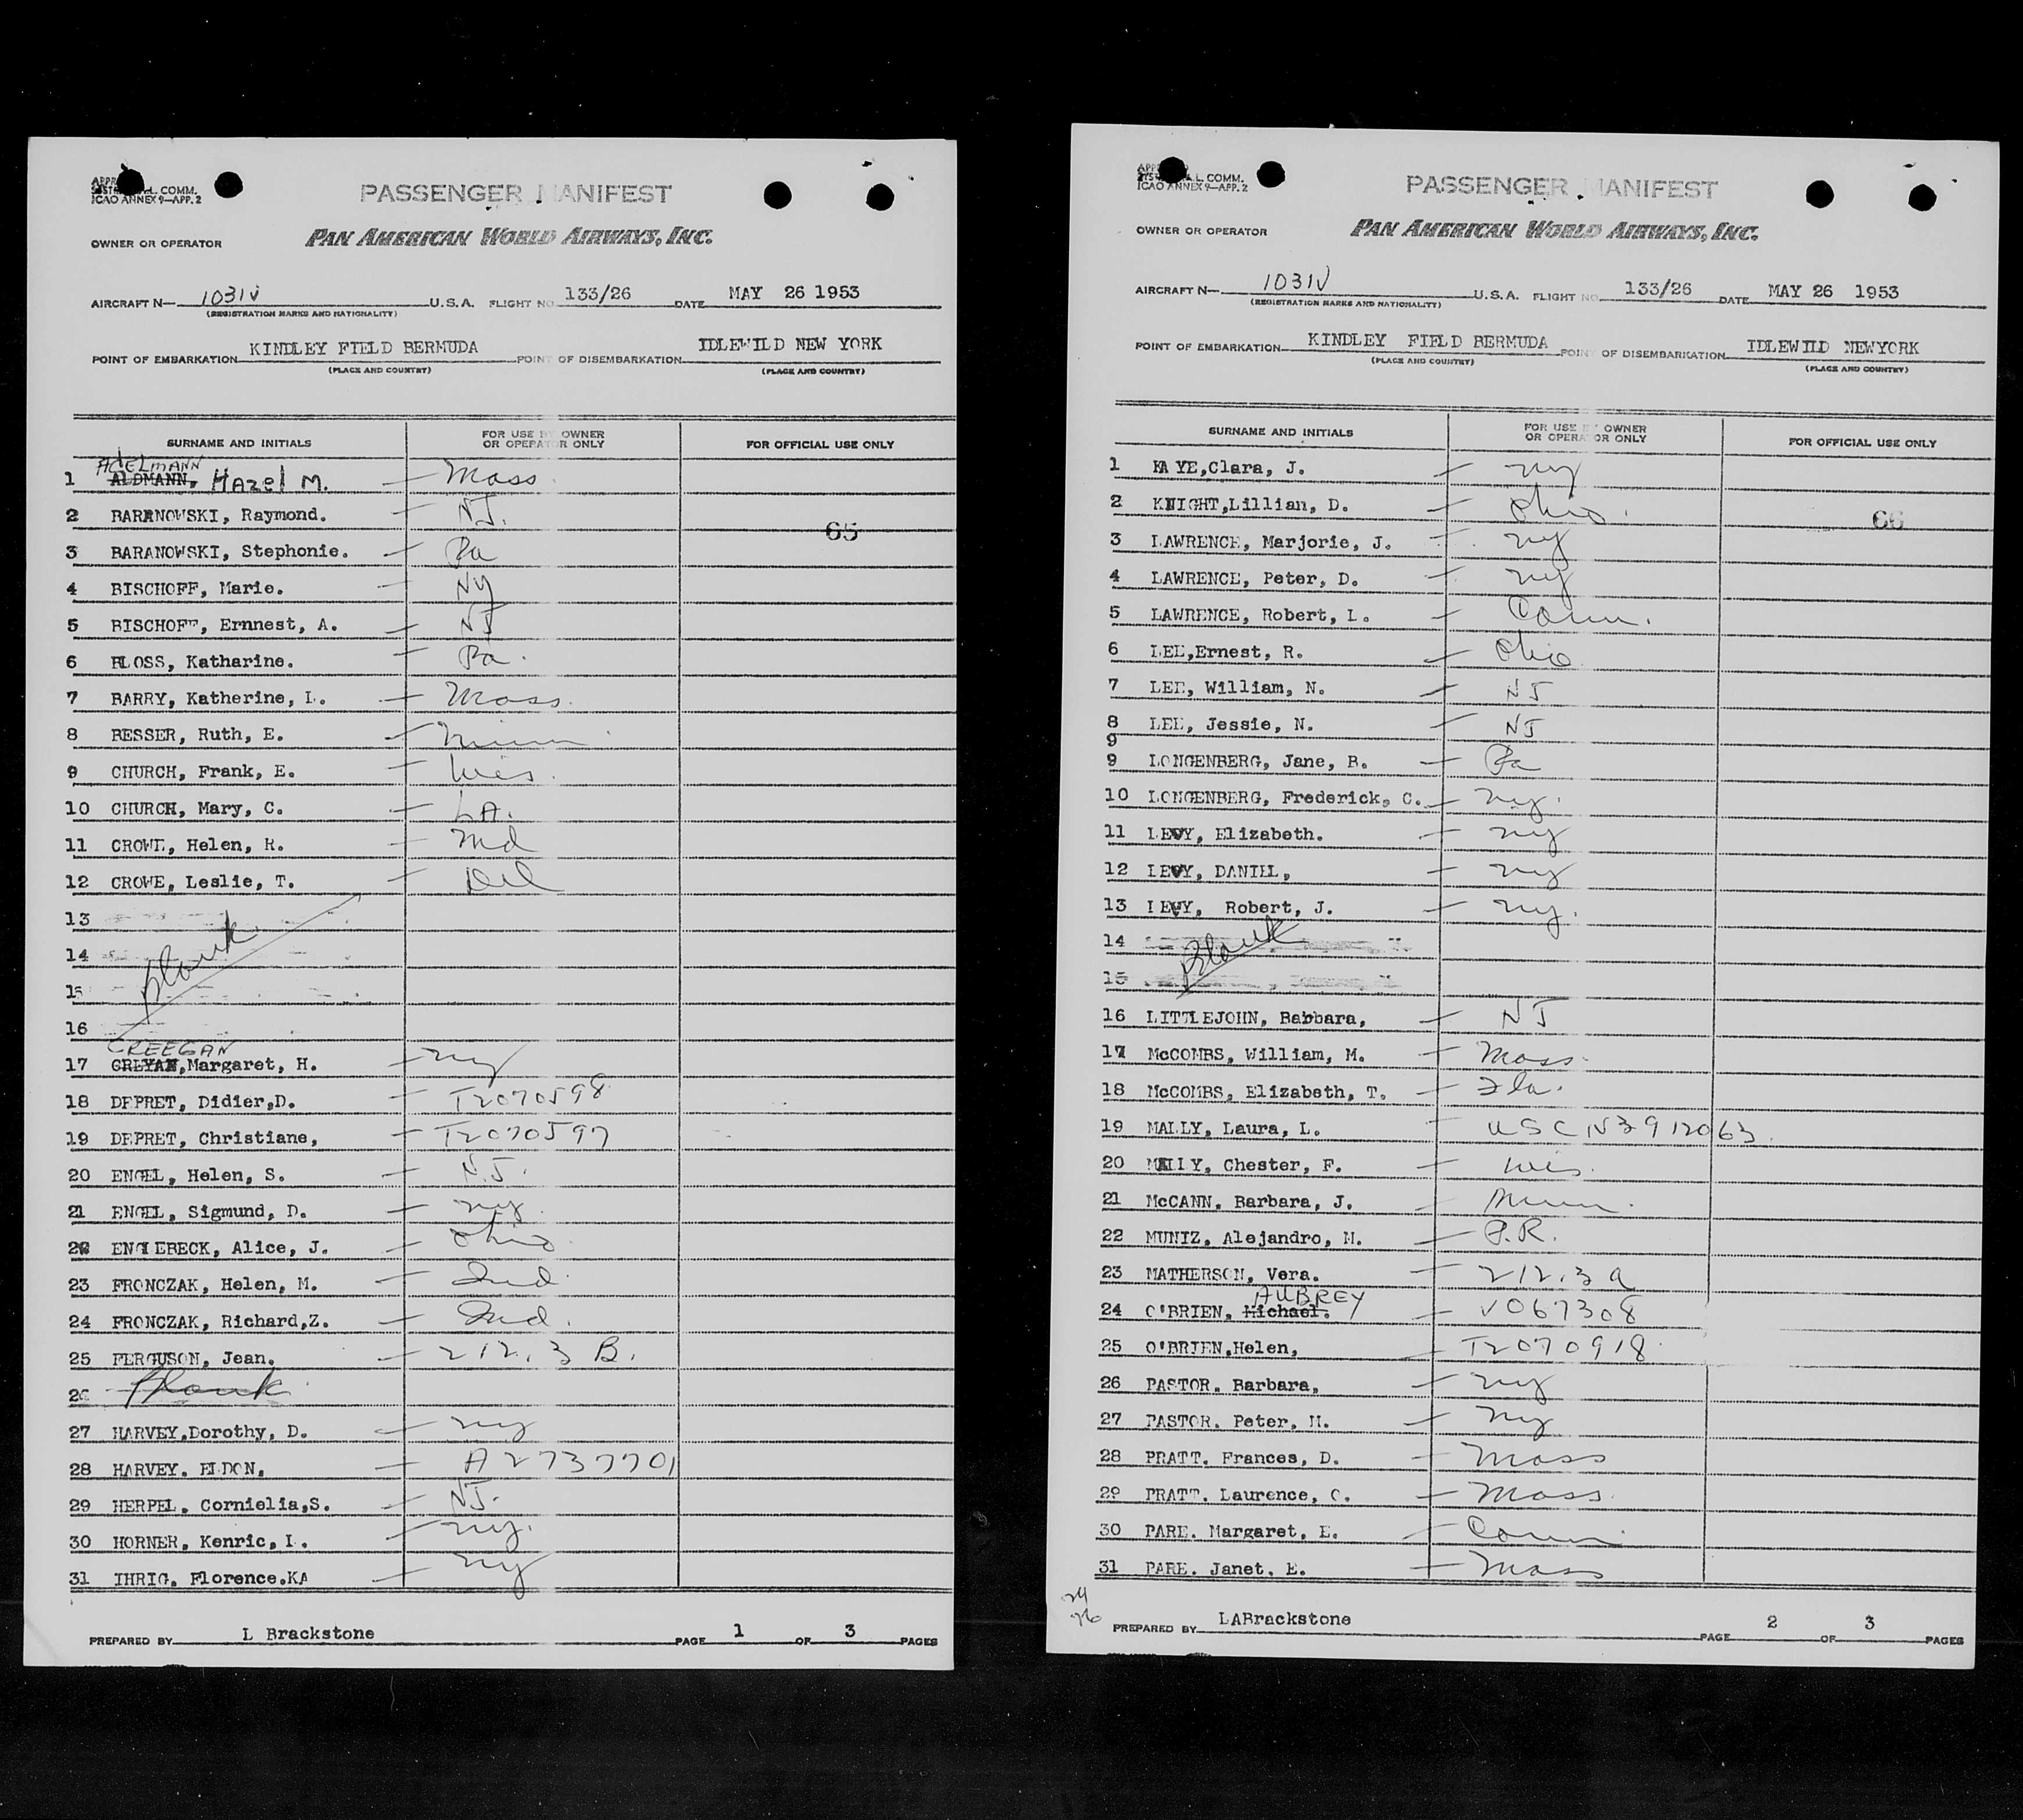 APPR
SYST L. COMM.
ICAO ANNEX 9—APP. 2
PASSENGER MANIFEST
OWNER OR OPERATOR PAN AMERICAN WORLD AIRWAYS, INC.
AIRCRAFT N— 1031V U.S.A. FLIGHT NO 133/26 DATE MAY 26 1953
(REGISTRATION MARKS AND NATIONALITY)
POINT OF EMBARKATION KINDLEY FIELD BERMUDA POINT OF DISEMBARKATION IDLEWILD NEW YORK
(PLACE AND COUNTRY) (PLACE AND COUNTRY)
SURNAME AND INITIALS FOR USE BY OWNER OR OPERATOR ONLY FOR OFFICIAL USE ONLY
ADELMANN
1 ALDMANN, HAzel M. — Mass
2 BARANOWSKI, Raymond. — NJ.
65
3 BARANOWSKI, Stephonie. — Pa
4 BISCHOFF, Marie. — NY
5 BISCHOFF, Ernnest, A. — NJ
6 BLOSS, Katharine. — Pa.
7 BARRY, Katherine, L. — Mass.
8 BESSER, Ruth, E. — Minn.
9 CHURCH, Frank, E. — Wis.
10 CHURCH, Mary, C. — LA.
11 CROWE, Helen, R. — Md
12 CROWE, Leslie, T. — Del
13
14 Blank
15
16
CREEGAN
17 GREYAN, Margaret, H. — NY
18 DEPRET, Didier,D. — T2070598
19 DEPRET, Christiane, — T2070597
20 ENGEL, Helen, S. — N.J.
21 ENGEL, Sigmund, D. — NY.
22 ENGLEBECK, Alice, J. — Ohio
23 FRONCZAK, Helen, M. — Ind.
24 FRONCZAK, Richard,Z. — Ind.
25 FERGUSON, Jean. — 212.3 B.
26 Blank
27 HARVEY,Dorothy, D. — NY
28 HARVEY. ELDON, — A2737701
29 HERPEL, Cornielia,S. — NJ.
30 HORNER, Kenric, L. — NY.
31 IHRIG, Florence.KA — NY
PREPARED BY L Brackstone PAGE 1 OF 3 PAGES
APP
SYST A.L. COMM.
ICAO ANNEX 9—APP. 2
PASSENGER MANIFEST
OWNER OR OPERATOR PAN AMERICAN WORLD AIRWAYS, INC.
AIRCRAFT N— 1031V U.S.A. FLIGHT NO. 133/26 DATE MAY 26 1953
(REGISTRATION MARKS AND NATIONALITY)
POINT OF EMBARKATION KINDLEY FIELD BERMUDA POINT OF DISEMBARKATION IDLEWILD NEWYORK
(PLACE AND COUNTRY) (PLACE AND COUNTRY)
SURNAME AND INITIALS FOR USE BY OWNER OR OPERATOR ONLY FOR OFFICIAL USE ONLY
1 KAYE,Clara, J. — NY
2 KNIGHT,Lillian, D. — Ohio.
66
3 LAWRENCE, Marjorie, J. — NY
4 LAWRENCE, Peter, D. — NY
5 LAWRENCE, Robert, L. — Conn.
6 LEE,Ernest, R. — Ohio
7 LEE, William, N. — NJ
8 LEE, Jessie, N. — NJ
9
9 LONGENBERG, Jane, B. — Pa
10 LONGENBERG, Frederick, C. — NY.
11 LEVY, Elizabeth. — NY
12 LEVY, DANIEL, — NY
13 LEVY, Robert, J. — NY.
14 Blank
15
16 LITTLEJOHN, Barbara, — NJ
17 McCOMBS, William, M. — Mass.
18 McCOMBS, Elizabeth, T. — Fla.
19 MALLY, Laura, L. — USCN3912063
20 MALLY, Chester, F. — Wis.
21 McCANN. Barbara, J. — Minn.
22 MUNIZ, Alejandro, M. — P.R.
23 MATHERSON, Vera. — 212.3 a
AUBREY
24 O'BRIEN, Michael. — V067308
25 O'BRIEN,Helen, — T2070918
26 PASTOR. Barbara, — NY
27 PASTOR. Peter, M. — NY
28 PRATT. Frances, D. — Mass
29 PRATT. Laurence, C. — Mass.
30 PARE. Margaret, E. — Conn
31 PARE. Janet, E. — Mass
24
26
PREPARED BY LABrackstone PAGE 2 OF 3 PAGES